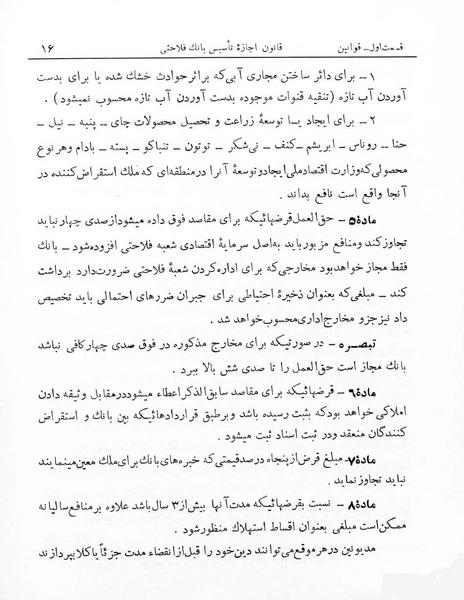 قسمت اول ــ قوانین قانون اجازهٔ تأسیس بانك فلاحتی ۱۶
۱ــ برای دائر ساختن مجاری آبی‌که بر اثر حوادث خشك شده یا برای بدست
آوردن آب تازه (تنقیه قنوات موجوده بدست آوردن آب تازه محسوب نمیشود) .
۲ ــ برای ایجاد یا توسعهٔ زراعت و تحصیل محصولات چای ــ پنبه ــ نیل ــ
حنا ــ روناس ــ ابریشم ــ کنف ــ نی‌شکر ــ توتون ــ تنباکو ــ پسته ــ بادام و هر نوع
محصولی‌که وزارت اقتصاد ملی ایجاد و توسعهٔ آنرا در منطقه‌ای که ملك استقراض کننده در
آنجا واقع است نافع بداند .
مادهٔ ۵ــ حق‌العمل قرضهائیکه برای مقاصد فوق داده میشود از صدی چهار نباید
تجاوز کند و منافع مزبور باید به‌اصل سرمایهٔ اقتصادی شعبه فلاحتی افزوده شود ــ بانك
فقط مجاز خواهد بود مخارجی‌که برای اداره‌کردن شعبهٔ فلاحتی ضرورت دارد برداشت
کند ــ مبلغی‌که بعنوان ذخیرهٔ احتیاطی برای جبران ضررهای احتمالی باید تخصیص
داد نیز جزو مخارج اداری محسوب خواهد شد .
تبصره ــ در صورتیکه برای مخارج مذکوره در فوق صدی چهار کافی نباشد
بانك مجاز است حق‌العمل را تا صدی شش بالا ببرد .
مادهٔ ۶ ــ قرضهائیکه برای مقاصد سابق‌الذکر اعطاء میشود در مقابل وثیقه دادن
املاکی خواهد بود که بثبت رسیده باشد و بر طبق قراردادهائیکه بین بانك و استقراض
کنندگان منعقد و در ثبت اسناد ثبت میشود .
مادهٔ ۷ــ مبلغ قرض از پنجاه درصد قیمتی که خبره‌های بانك برای ملك معین مینمایند
نباید تجاوز نماید .
مادهٔ ۸ ــ نسبت بقرضهائیکه مدت آنها بیش از ۳ سال باشد علاوه بر منافع سالیانه
ممکن است مبلغی بعنوان اقساط استهلاك منظور شود .
مدیونین در هر موقع می‌توانند دین خود را قبل از انقضاء مدت جزئاً یا کلا بپردازند